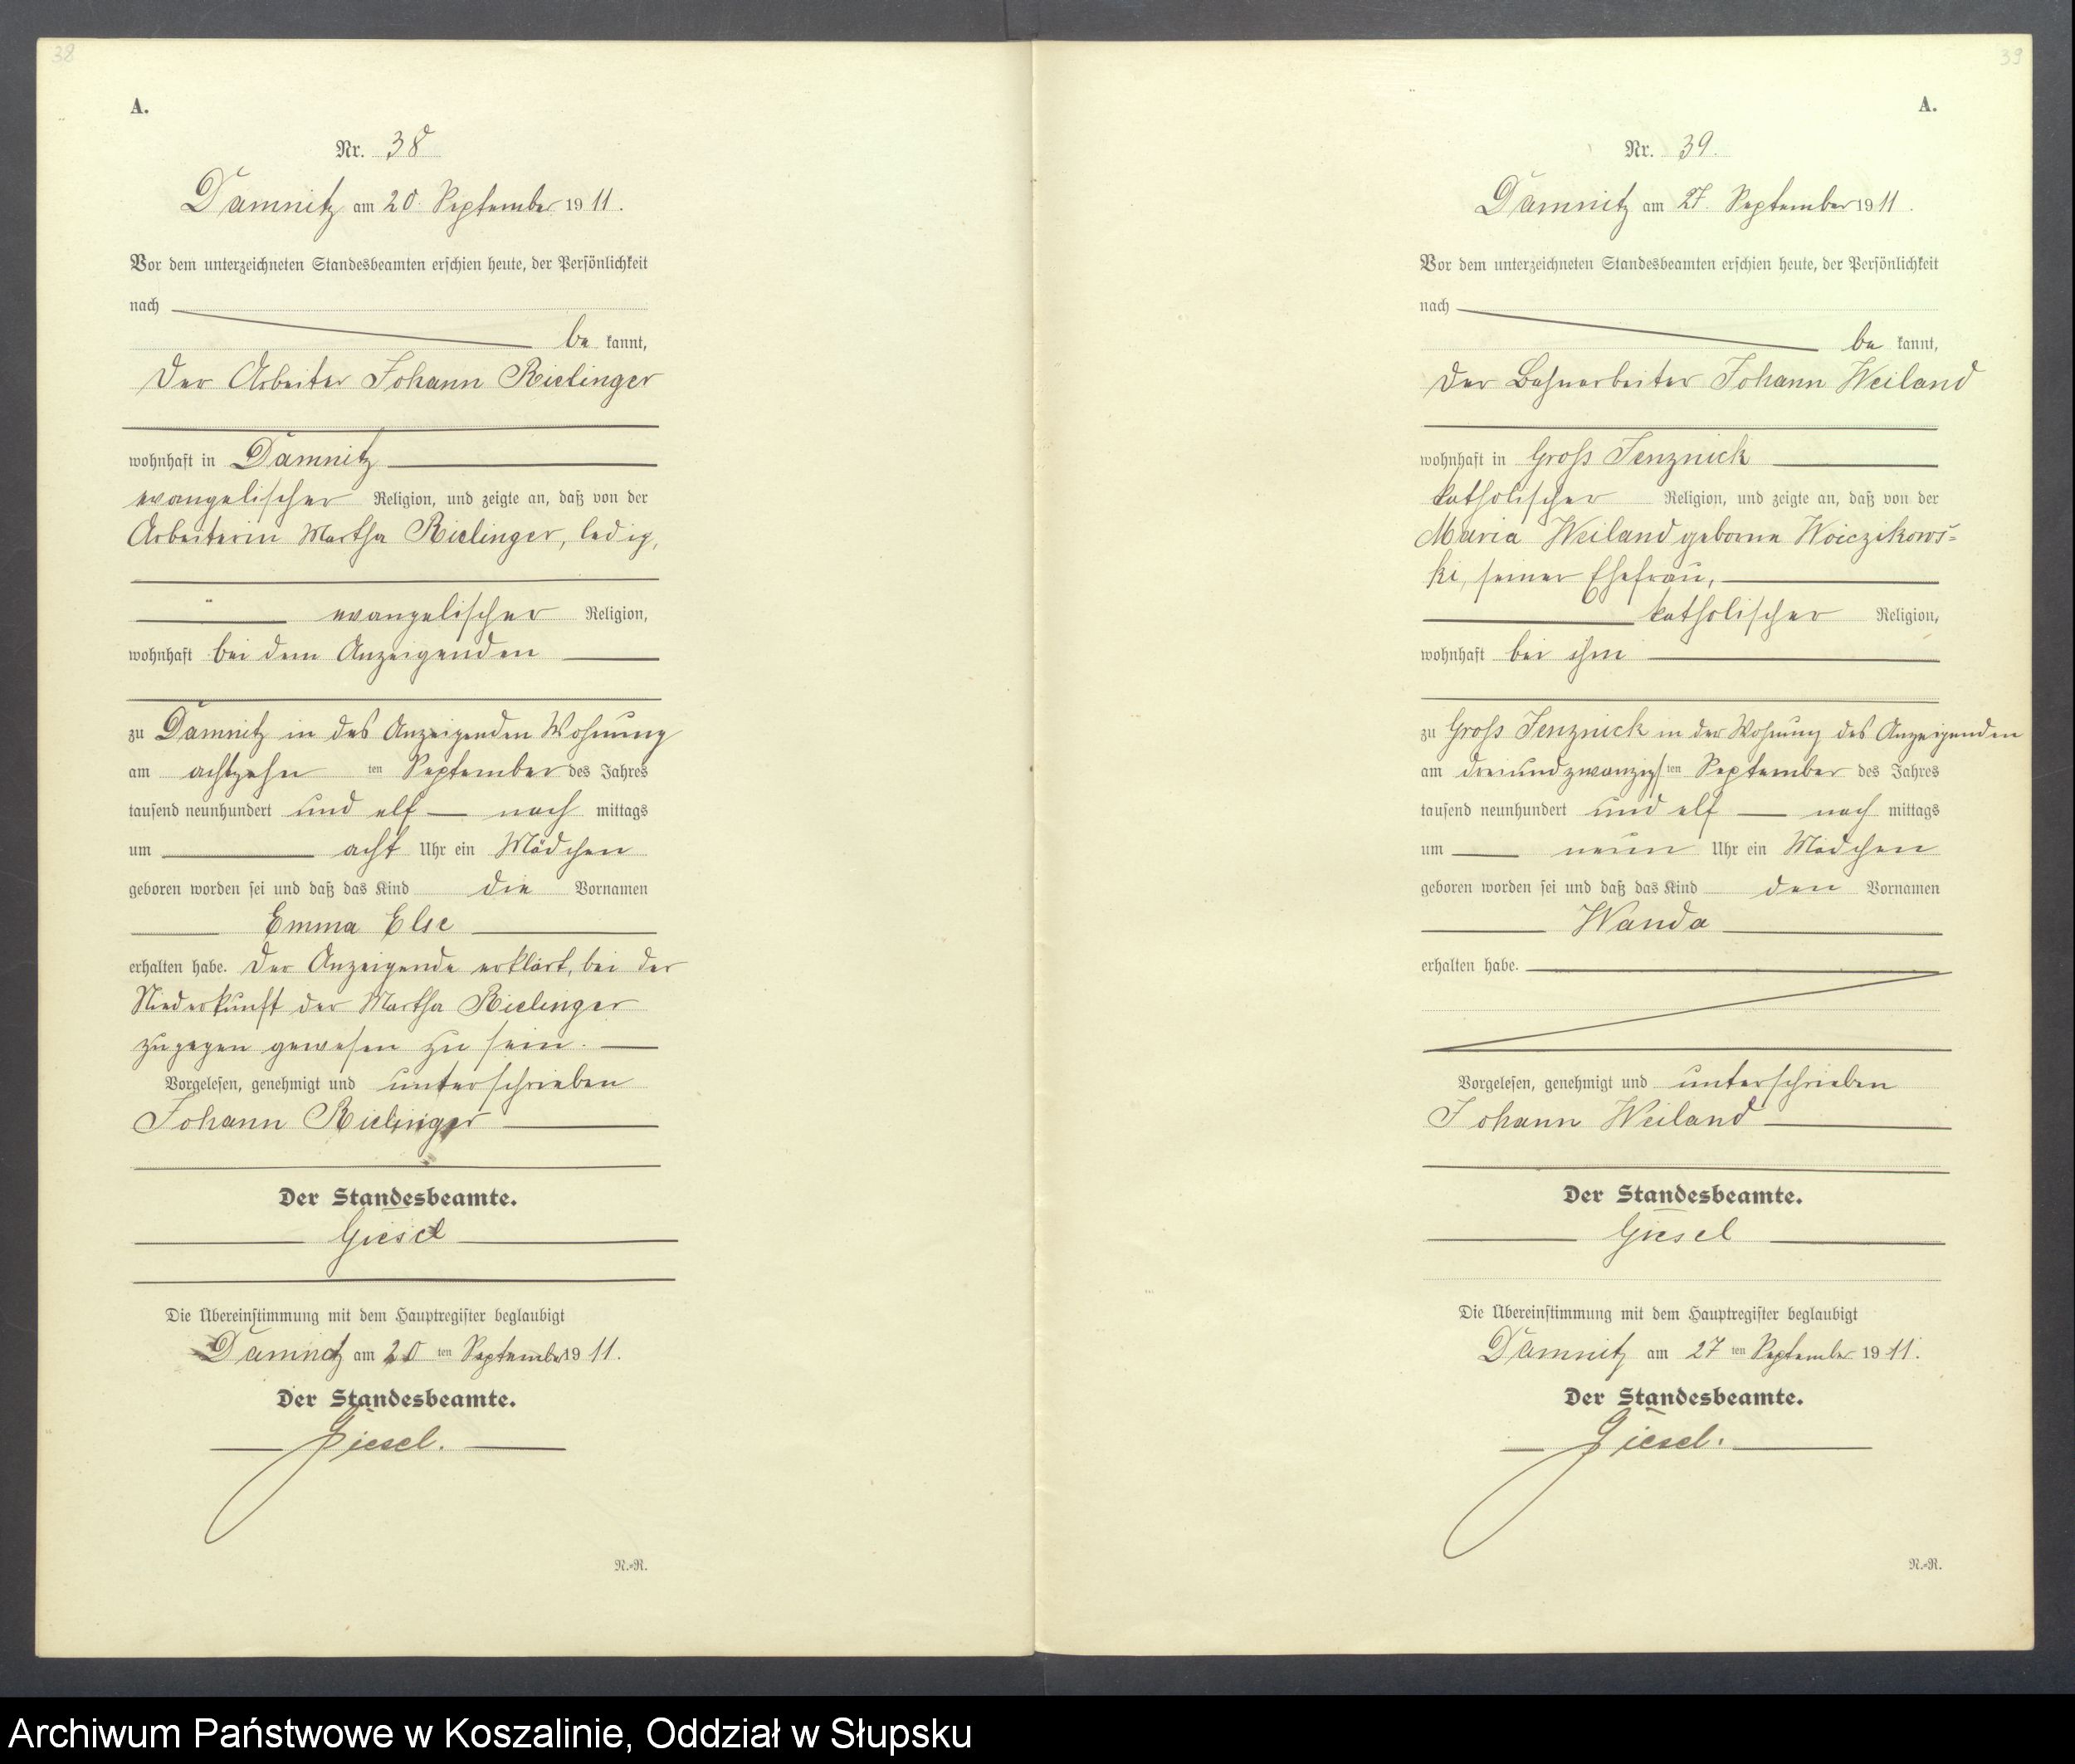 38
A.
Nr. 38
Damnitz am 20. September 1911.
Vor dem unterzeichneten Standesbeamten erschien heute, der Persönlichkeit
nach
be kannt,
der Arbeiter Johann Rielinger
wohnhaft in Damnitz
evangelischer Religion, und zeigte an, daß von der
Arbeiterin Martha Rielinger, ledig,
evangelischer Religion,
wohnhaft bei dem Anzeigenden
zu Damnitz in des Anzeigenden Wohnung
am achtzehn ten September des Jahres
tausend neunhundert und elf nach mittags
um acht Uhr ein Mädchen
geboren worden sei und daß das Kind die Vornamen
Emma Else
erhalten habe. Der Anzeigende erklärt, bei der
Niederkunft der Martha Rielinger
zugegen gewesen zu sein.
Vorgelesen, genehmigt und unterschrieben
Johann Rielinger
Der Standesbeamte.
Giesel
Die Übereinstimmung mit dem Hauptregister beglaubigt
Damnitz am 20 ten September 1911.
Der Standesbeamte.
Giesel.
N.=R.
39
A.
Nr. 39.
Damnitz am 27. September 1911.
Vor dem unterzeichneten Standesbeamten erschien heute, der Persönlichkeit
nach
be kannt,
der Bahnarbeiter Johann Weiland
wohnhaft in Groß Jenznick
katholischer Religion, und zeigte an, daß von der
Maria Weiland geborne Woiczikows=
ki, seiner Ehefrau,
katholischer Religion,
wohnhaft bei ihm
zu Groß Jenznick in der Wohnung des Anzeigenden
am dreiundzwanzigsten September des Jahres
tausend neunhundert und elf nach mittags
um neun Uhr ein Mädchen
geboren worden sei und daß das Kind den Vornamen
Wanda
erhalten habe.
Vorgelesen, genehmigt und unterschrieben
Johann Weiland
Der Standesbeamte.
Giesel
Die Übereinstimmung mit dem Hauptregister beglaubigt
Damnitz am 27 ten September 1911.
Der Standesbeamte.
Giesel.
N.=R.
Archiwum Państwowe w Koszalinie, Oddział w Słupsku